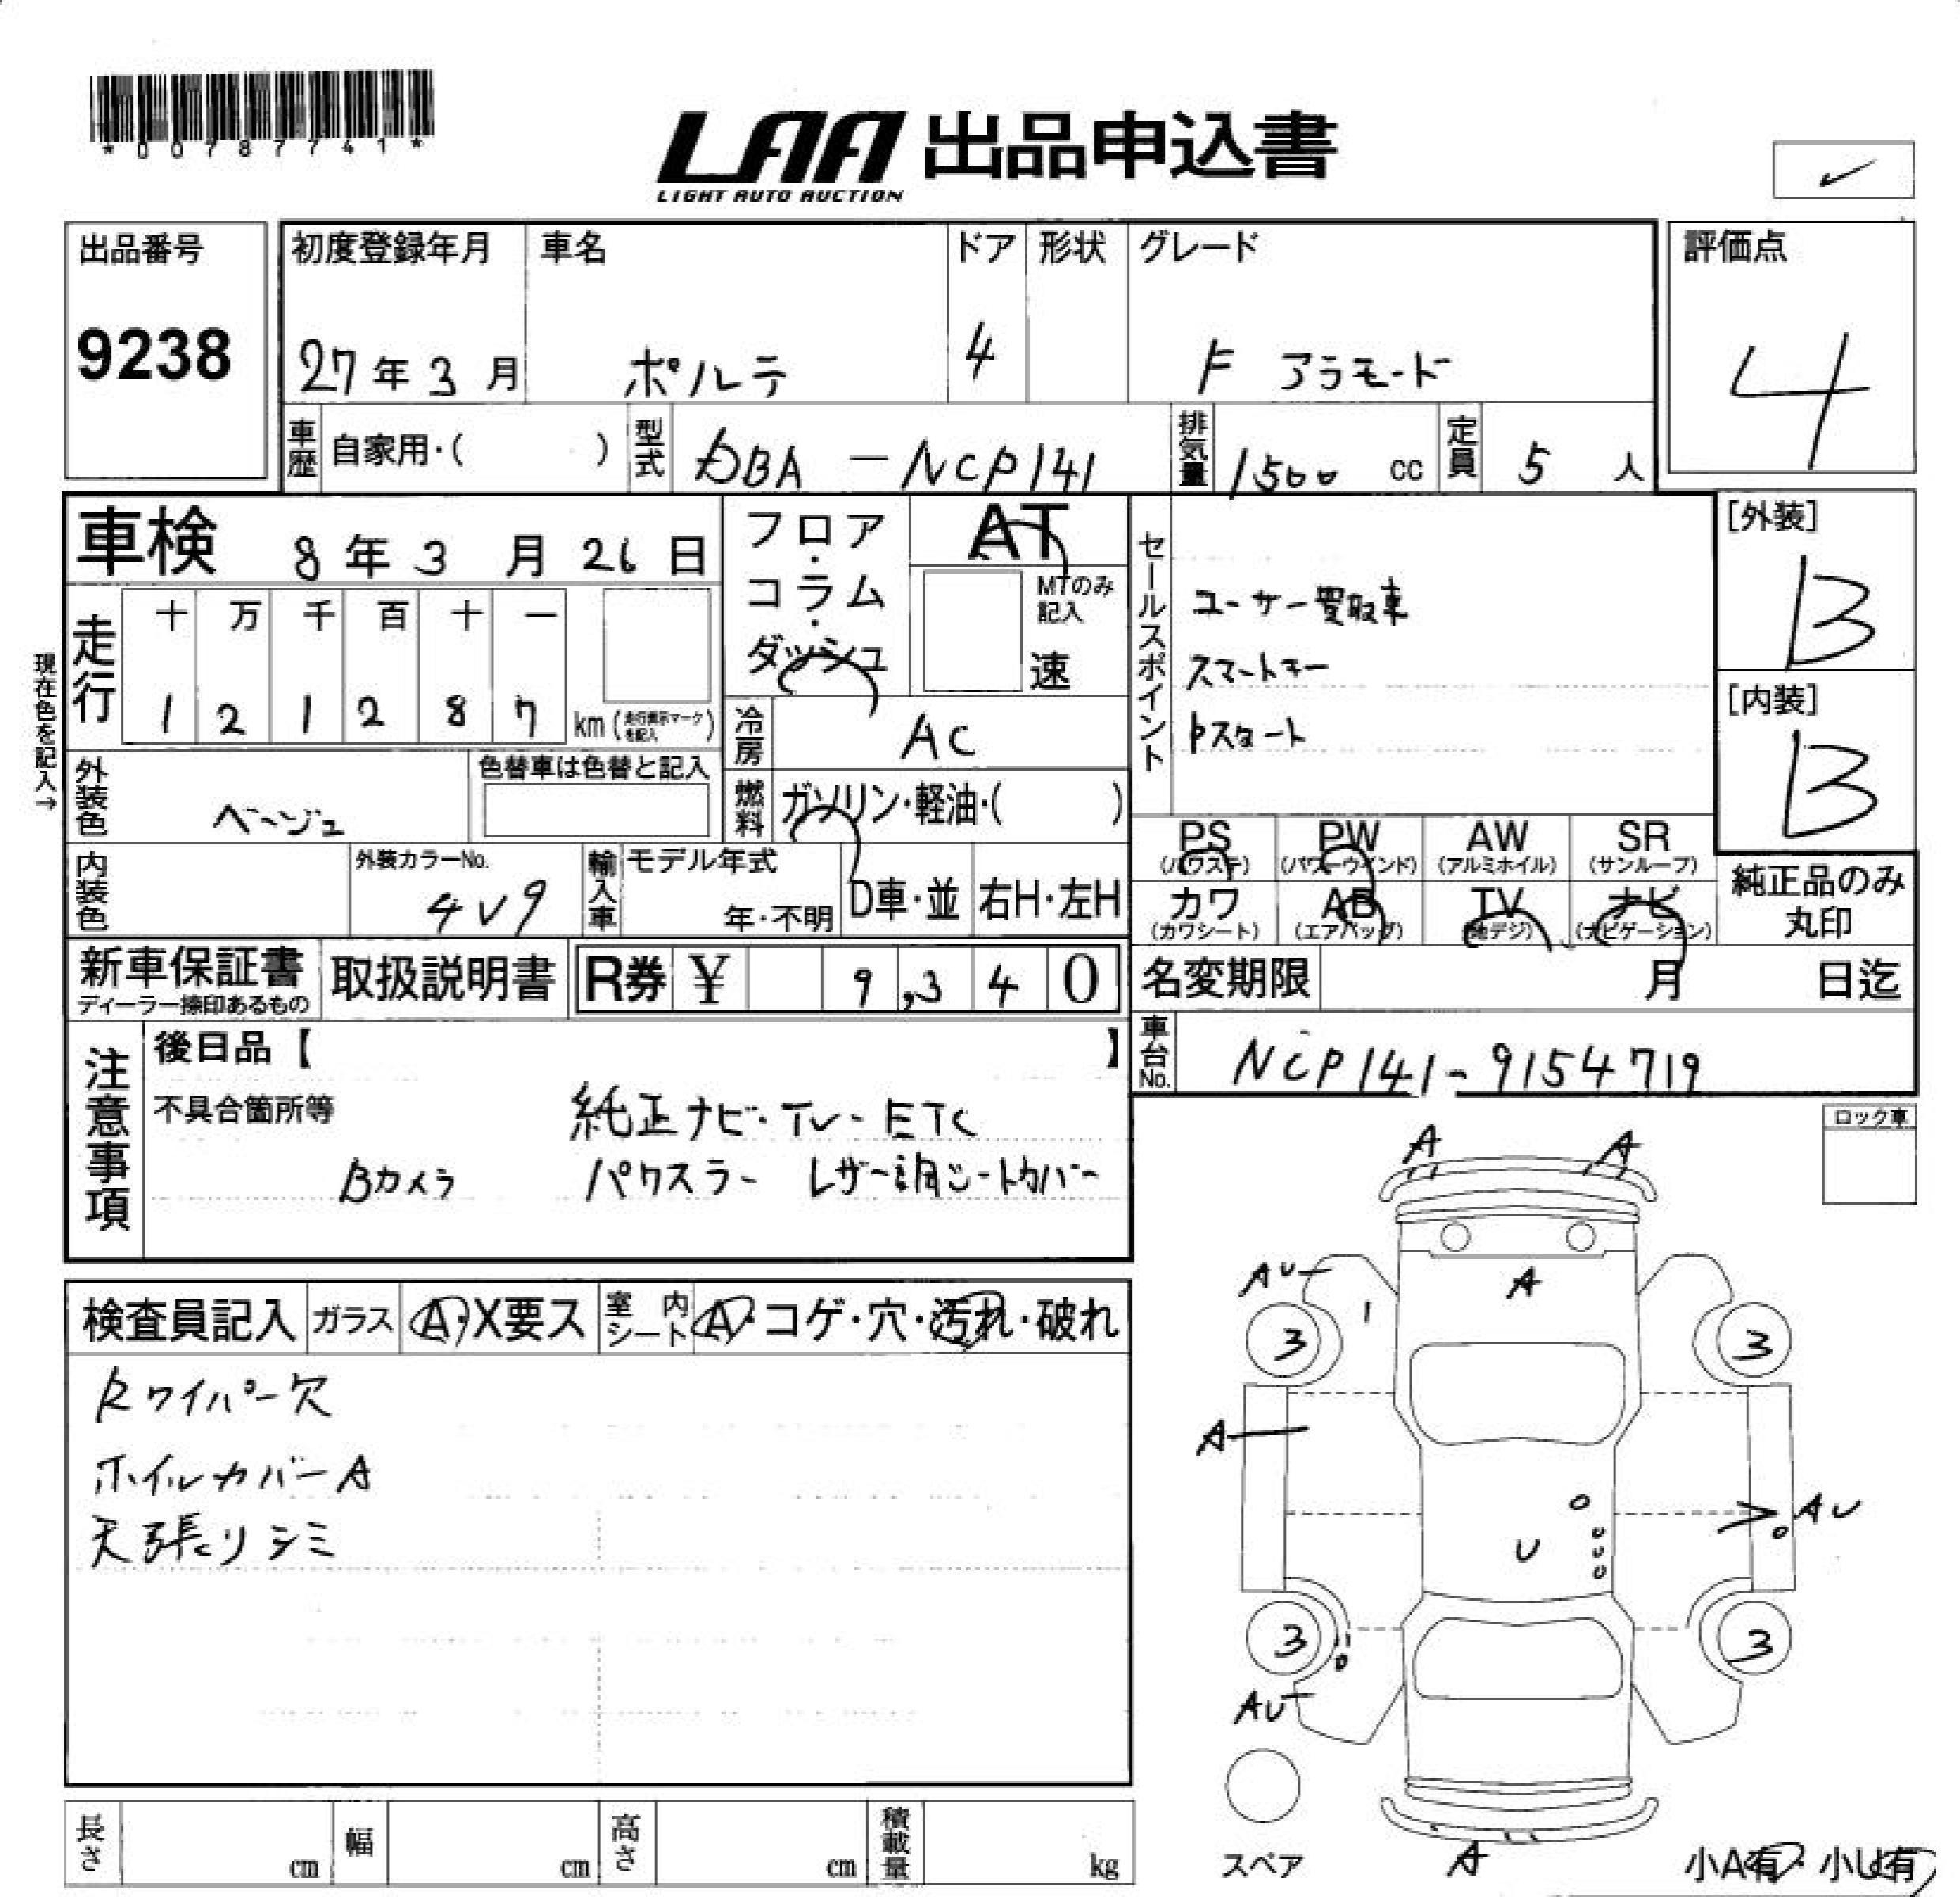 *00787741*
LAA 出品申込書
LIGHT AUTO AUCTION
出品番号 初度登録年月 車名 ドア 形状 グレード 評価点
9238 27年3月 ポルテ 4 F アラモード 4
車歴 自家用・( ) 型式 DBA-NCP141 排気量 1500 cc 定員 5 人
車検 8年3月26日 フロア・コラム・ダッシュ AT [外装]
MTのみ記入 速 B
セールスポイント
ユーザー買取車
スマートキー
Pスタート
現在色を記入→
走行 十 万 千 百 十 一
1 2 1 2 8 7 km (走行表示マークを記入) [内装]
冷房 AC B
外装色 ベージュ 色替車は色替と記入 燃料 ガソリン・軽油・( )
PS (パワステ) PW (パワーウインド) AW (アルミホイル) SR (サンルーフ)
内装色 外装カラーNo. 4V9 輸入車 モデル年式 年・不明 D車・並 右H・左H
カワ (カワシート) AB (エアバッグ) TV (地デジ) ナビ (ナビゲーション) 純正品のみ丸印
新車保証書 ディーラー捺印あるもの 取扱説明書 R券 ¥ 9,340 名変期限 月 日迄
注意事項 後日品【 】 車台No. NCP141-9154719
不具合箇所等 純正ナビ・TV-ETC ロック車
Bカメラ パワスラー レザー調シートカバー
A A
AU A
3 3
A
AU
U
3 3
AU
A
検査員記入 ガラス A・X要ス 室内シート A・コゲ・穴・汚れ・破れ
Rワイパー欠
ホイルカバーA
天張リシミ
長さ cm 幅 cm 高さ cm 積載量 kg スペア 小A有・小U有